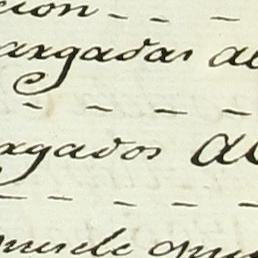 cion - - -
argadas al
- - - -
rgados al
- - - - -